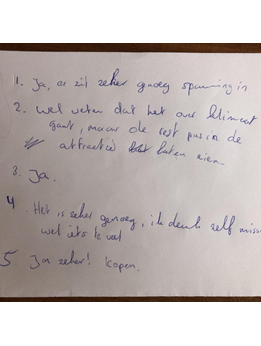 1. Ja, er zit zeker genoeg spanning in
2. wel weten dat het over klimaat
gaat, maar de rest pas in de
attractie laten zien
3. Ja.
4. Het is zeker genoeg, ik denk zelf miss
wel iets te veel
5 Jor zeker! kopen.